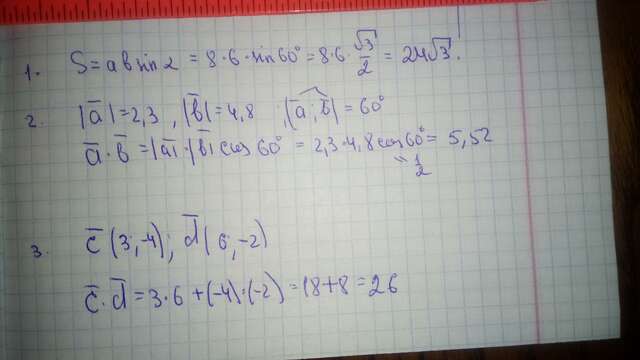 1. S = a b sin α = 8·6·sin60° = 8·6·√3/2 = 24√3.
2. |a̅| = 2,3 , |b̅| = 4,8 (a̅ ; b̅) = 60°
a̅ · b̅ = |a̅|·|b̅| cos 60° = 2,3·4,8 cos60° = 5,52
" 1/2
3. c̅ (3; -4); d̅ (6; -2)
c̅ · d̅ = 3·6 + (-4)·(-2) = 18+8 = 26